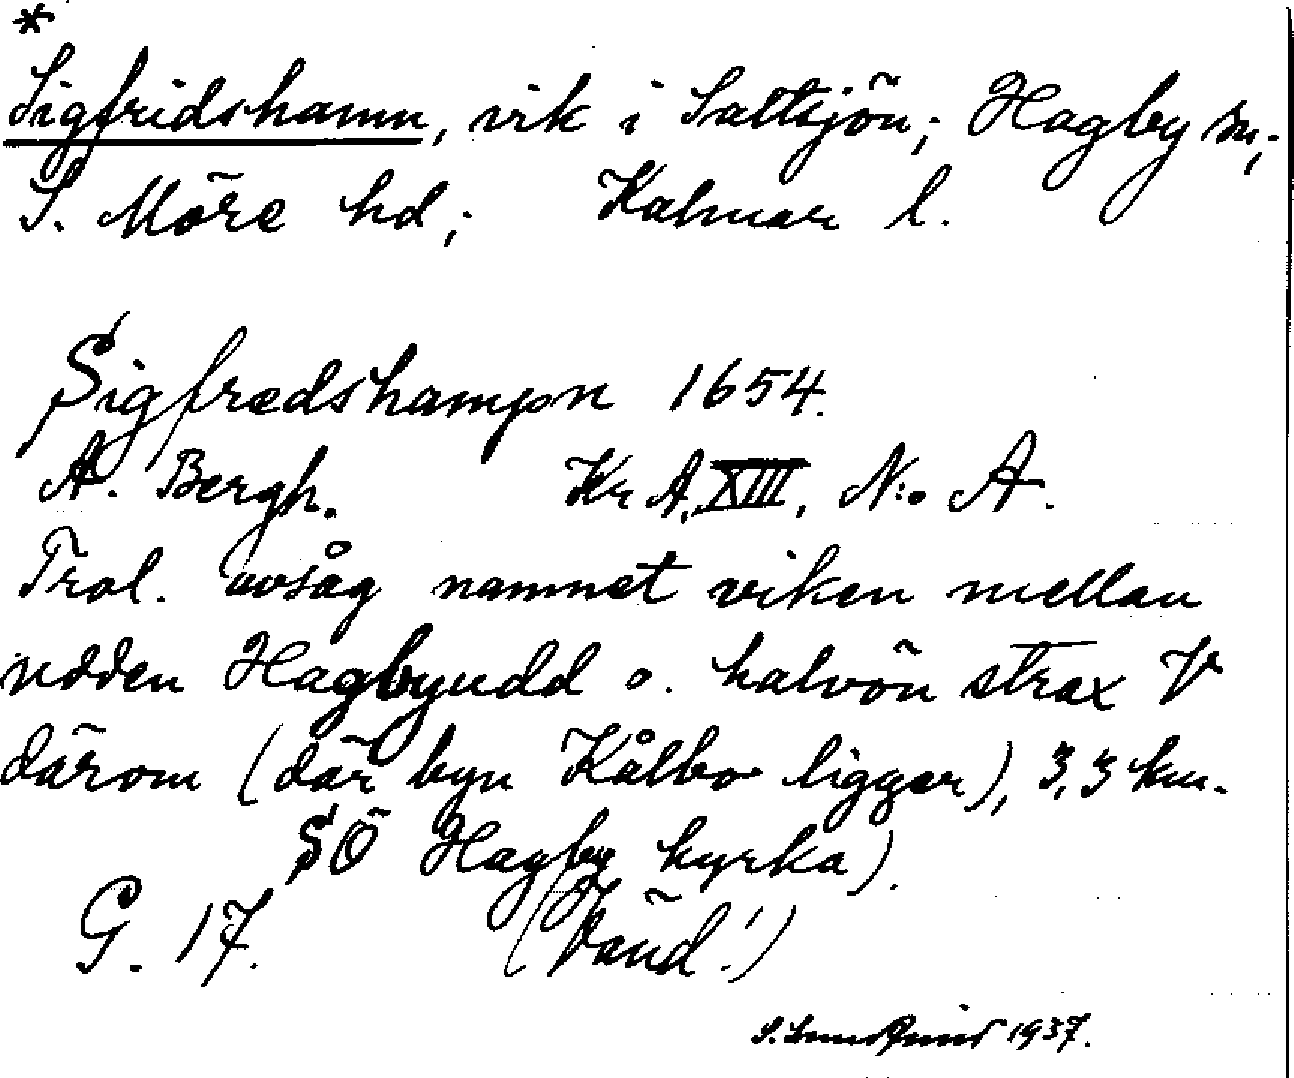 *
Sigfridshamn, vik i Saltsjön; Hagby sn;
S. Möre hd; Kalmar l.
Sigfredshampn 1654.
A. Bergh. Kr A, XIII, N:o A.
Trol. avsåg namnet viken mellan
udden Hagbyudd o. halvön strax V
därom (där byn Kålbo ligger), 3,3 km.
SÖ Hagby kyrka).
G. 17. (Vänd!)
S. 1937.